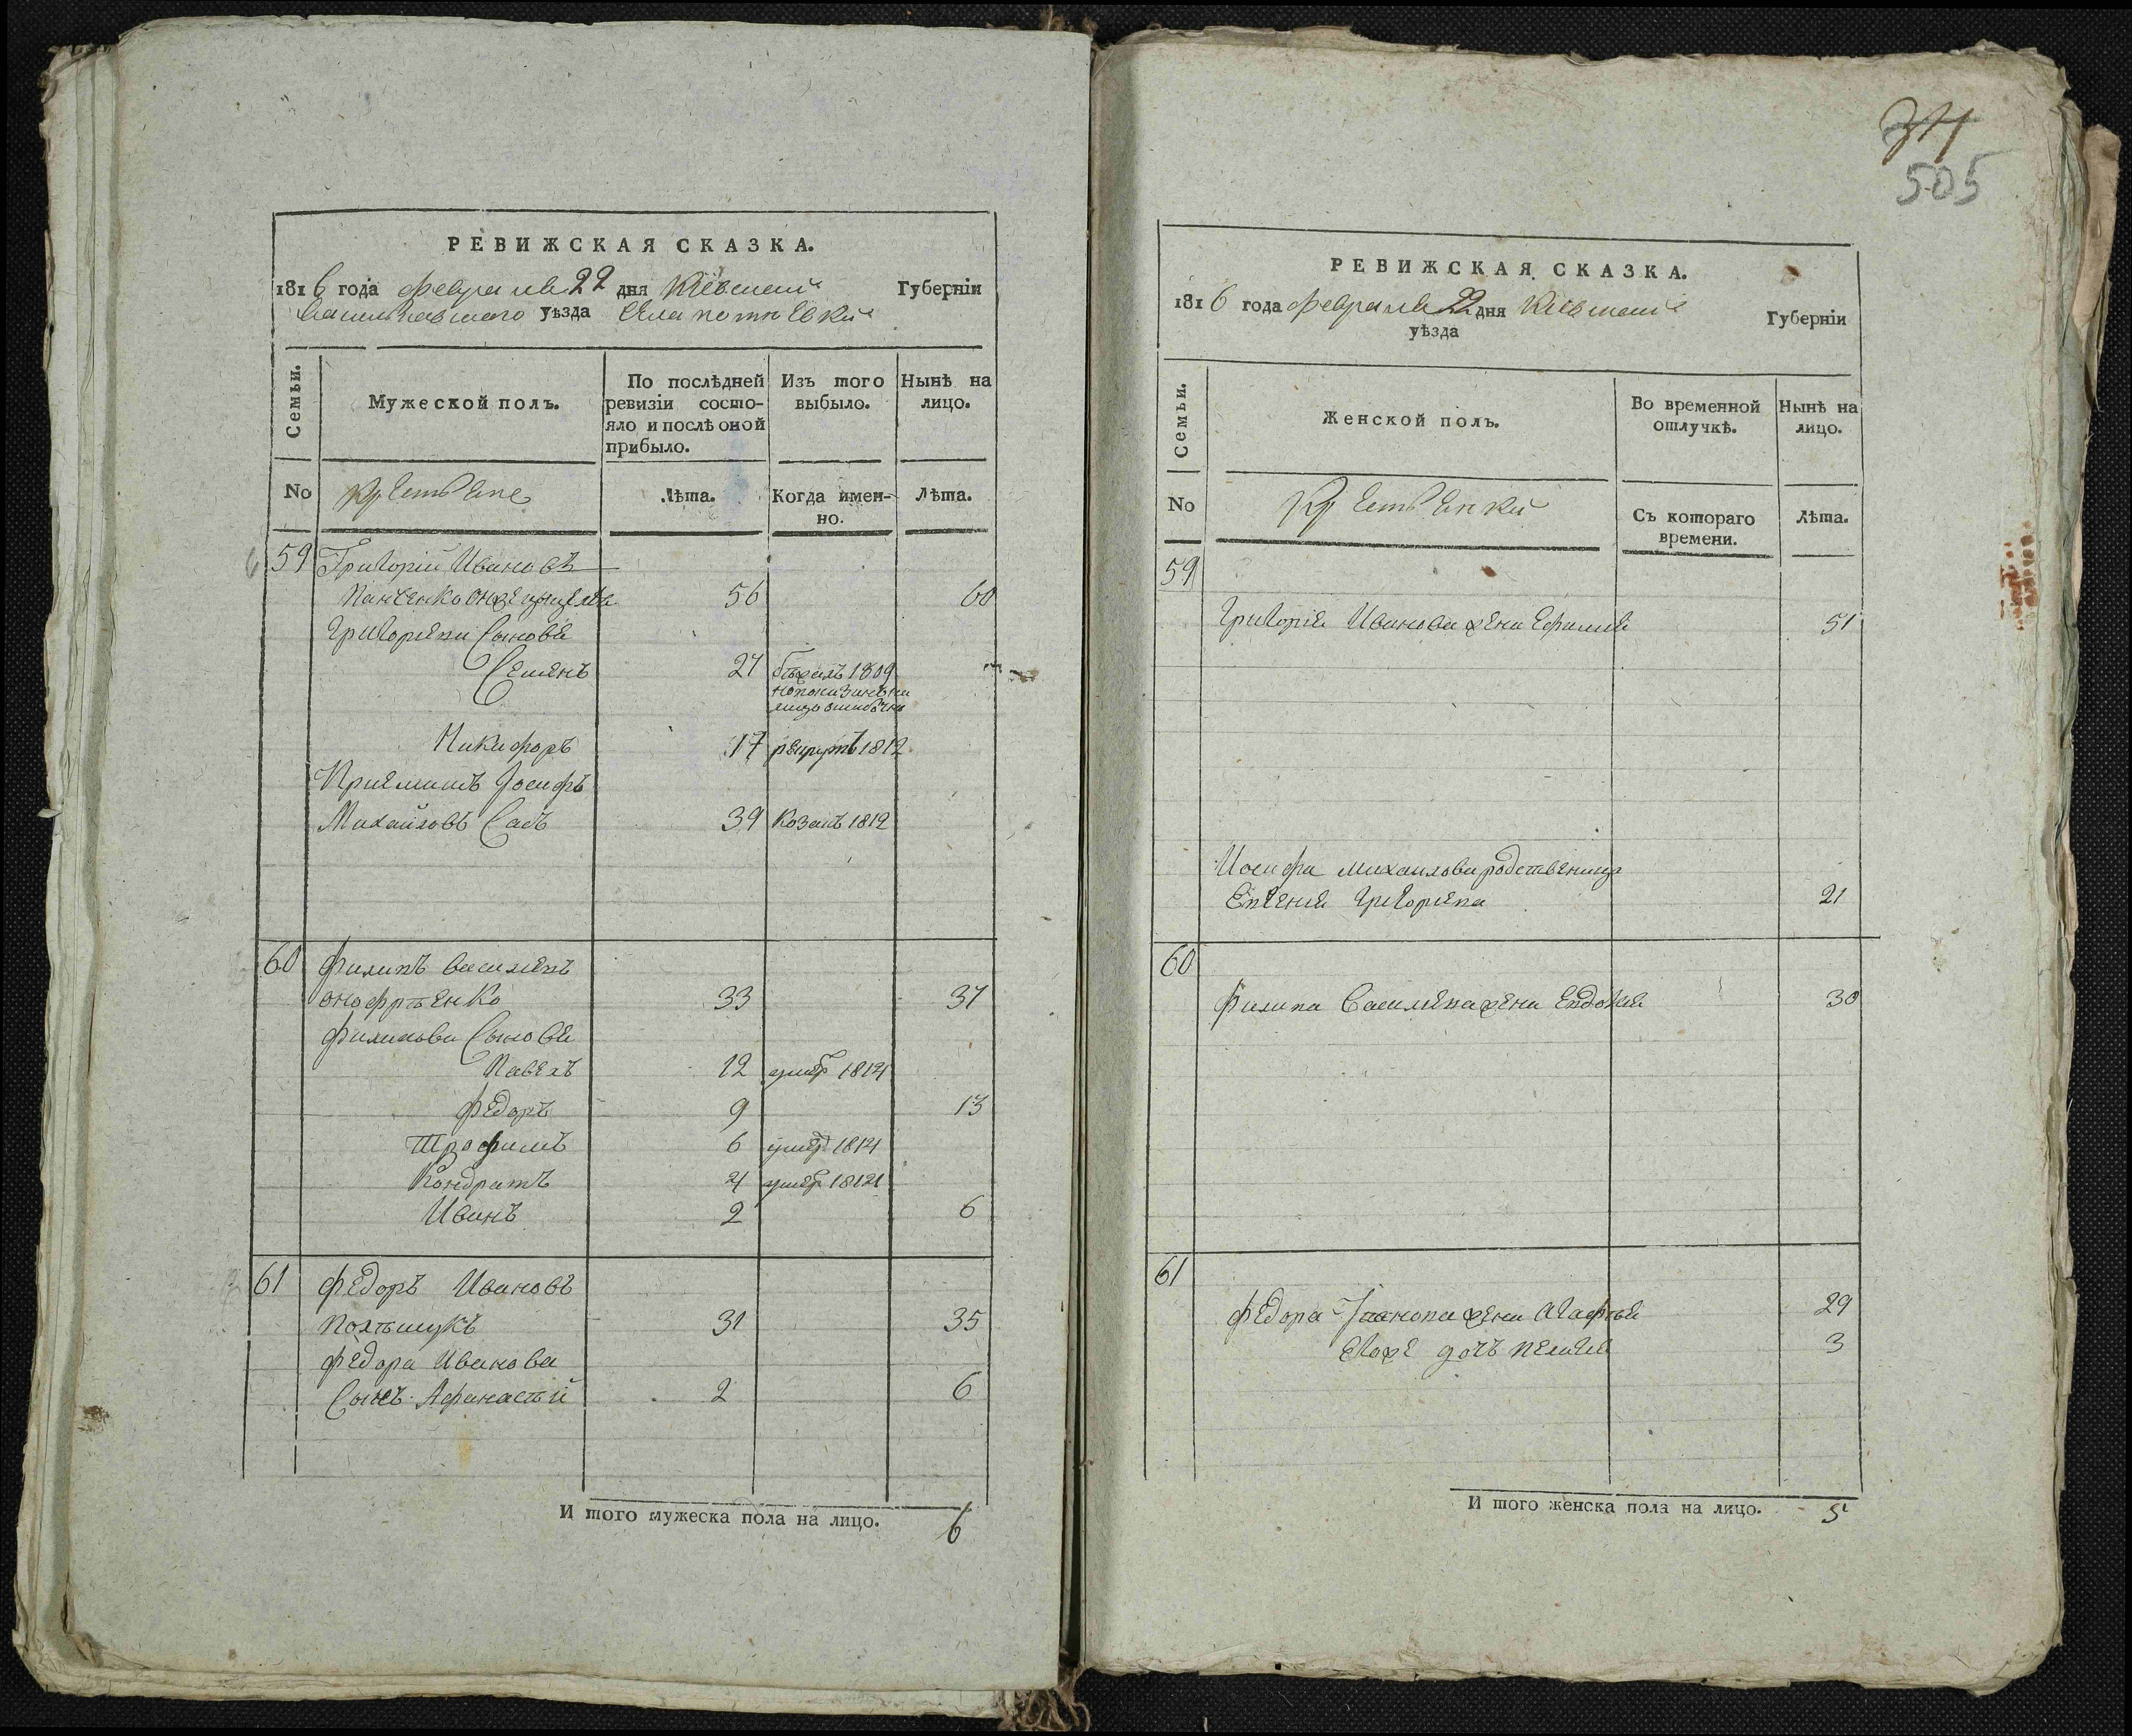 РЕВИЖСКАЯ СКАЗКА.
1816 года февраля 22 дня Кіевской Губерніи
Васильковскаго уѣзда Села
Семьи.
Мужеской полъ.
По послѣдней ревизіи состояло и послѣ оной прибыло.
Изъ того выбыло.
Нынѣ на лицо.
No
Крестьяне
Лѣта.
Когда именно.
Лѣта.
59 Григорій Ивановъ
Панченко онже 56 60
Григорьевы Сыновья
Семенъ 27 бѣжалъ 1809
Никифоръ 17 рекрутъ 1812
Приемышъ Іосифъ
Михайловъ 39 Козакъ 1812
60 Филипъ Васильевъ
онофрѣенко 33 37
Филипова Сыновья
Павелъ 12 умеръ 1814
Федоръ 9 13
Трофимъ 6 умеръ 1814
Кондратъ 4 умеръ 1812
Иванъ 2 6
61 Федоръ Ивановъ
Полѣщукъ 31 35
Федора Иванова
Сынъ Афанасѣй 2 6
И того мужеска пола на лицо. 6
34
505
РЕВИЖСКАЯ СКАЗКА.
1816 года февраля 22 дня Кіевской Губерніи
уѣзда
Семьи.
Женской полъ.
Во временной отлучкѣ.
Нынѣ на лицо.
No
Крестьянки
Съ котораго времени.
Лѣта.
59
Григорія Иванова жена Ефимия 51
Иосифа Михаилова родственица
Евгения Григорьева 21
60
Филипа Васильева жена Евдокия 30
61
Федора Иванова жена Агафья 29
Егоже дочь 3
И того женска пола на лицо. 5